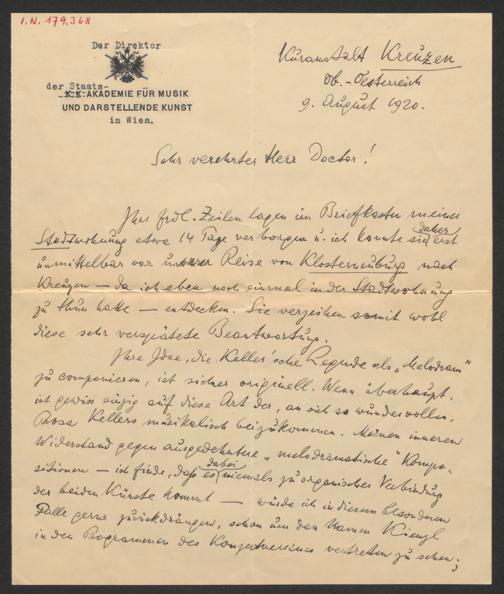 I.N. 179.368
Der Direktor
der Staats-
K.K. AKADEMIE FÜR MUSIK
UND DARSTELLENDE KUNST
in Wien.
Kuranstalt Kreuzen
Ob.-Oesterreich
9. August 1920.
Sehr verehrter Herr Doctor!
Ihre frdl. Zeilen lagen im Briefkasten meiner
Stadtwohnung etwa 14 Tage verborgen u. ich konnte sie daher erst
unmittelbar vor unserer Reise von Klosterneuburg nach
Kreuzen – da ich eben noch einmal in der Stadtwohnung
zu thun hatte – entdecken. Sie verzeihen somit wohl
diese sehr verspätete Beantwortung.
Ihre Idee, die Keller'sche Legende als „Melodram"
zu componieren, ist sicher originell. Wenn überhaupt,
ist gewiss einzig auf diese Art der, an sich so wundervollen,
Prosa Kellers musikalisch beizukommen. Meinen inneren
Widerstand gegen ausgedehntere „melodramatische" Kompo-
sitionen – ich finde, dass es dabei niemals zu organischer Verbindung
der beiden Künste kommt – würde ich in diesem besonderen
Falle gerne zurückdrängen, schon um den Namen Kienzl
in den Programmen des Konzertvereines vertreten zu sehen;